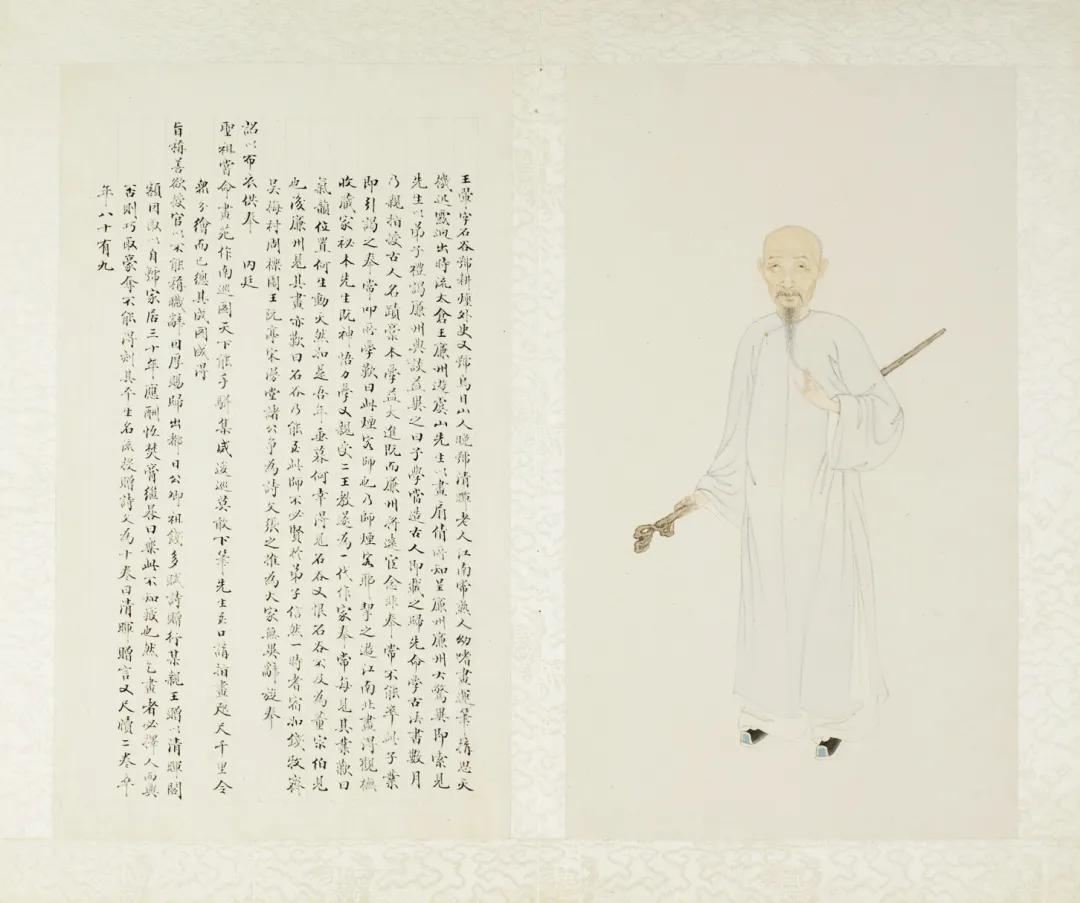 王翬字石谷號耕煙外史又號烏目山人晚號清暉老人江南常熟人幼嗜畫運筆搆思天
機迅露迥出時流太倉王廉州遊虞山先生以畫扇倩所知呈廉州廉州大驚異即索見
先生以弟子禮謁廉州與談益異之曰子學當造古人即載之歸先命學古法書數月
乃親指授古人名蹟稾本學益大進既而廉州將遠宦念非奉常不能卒此子業
即引謁之奉常叩所學歎曰此煙客師也乃師煙客耶挈之遊江南北盡得觀橅
收藏家秘本先生既神悟力學又親受二王教遂為一代作家奉常每見其業歎曰
氣韻位置何生動天然如是吾年垂暮何幸得見石谷又恨石谷不及為董宗伯見
也後廉州見其畫亦歎曰石谷乃能至此師不必賢於弟子信然一時耆宿如錢牧齋
吳梅村周櫟園王阮亭宋漫堂諸公爭為詩文張之推為大家無異辭旋奉
詔以布衣供奉 內廷
聖祖嘗命畫苑作南巡圖天下能手駢集咸逡巡莫敢下筆先生至口講指畫咫尺千里令
衆分繪而已總其成圖成得
旨稱善欲授官以不能稱職辭因厚賜歸出都日公卿祖餞多賦詩贈行某親王贈以清暉閣
額因取以自號家居三十年應酬恆焚膏繼晷曰樂此不知疲也然乞畫者必擇人而與
否則巧取豪奪不能得刻其平生名流投贈詩文為十卷曰清暉贈言又尺牘二卷卒
年八十有九